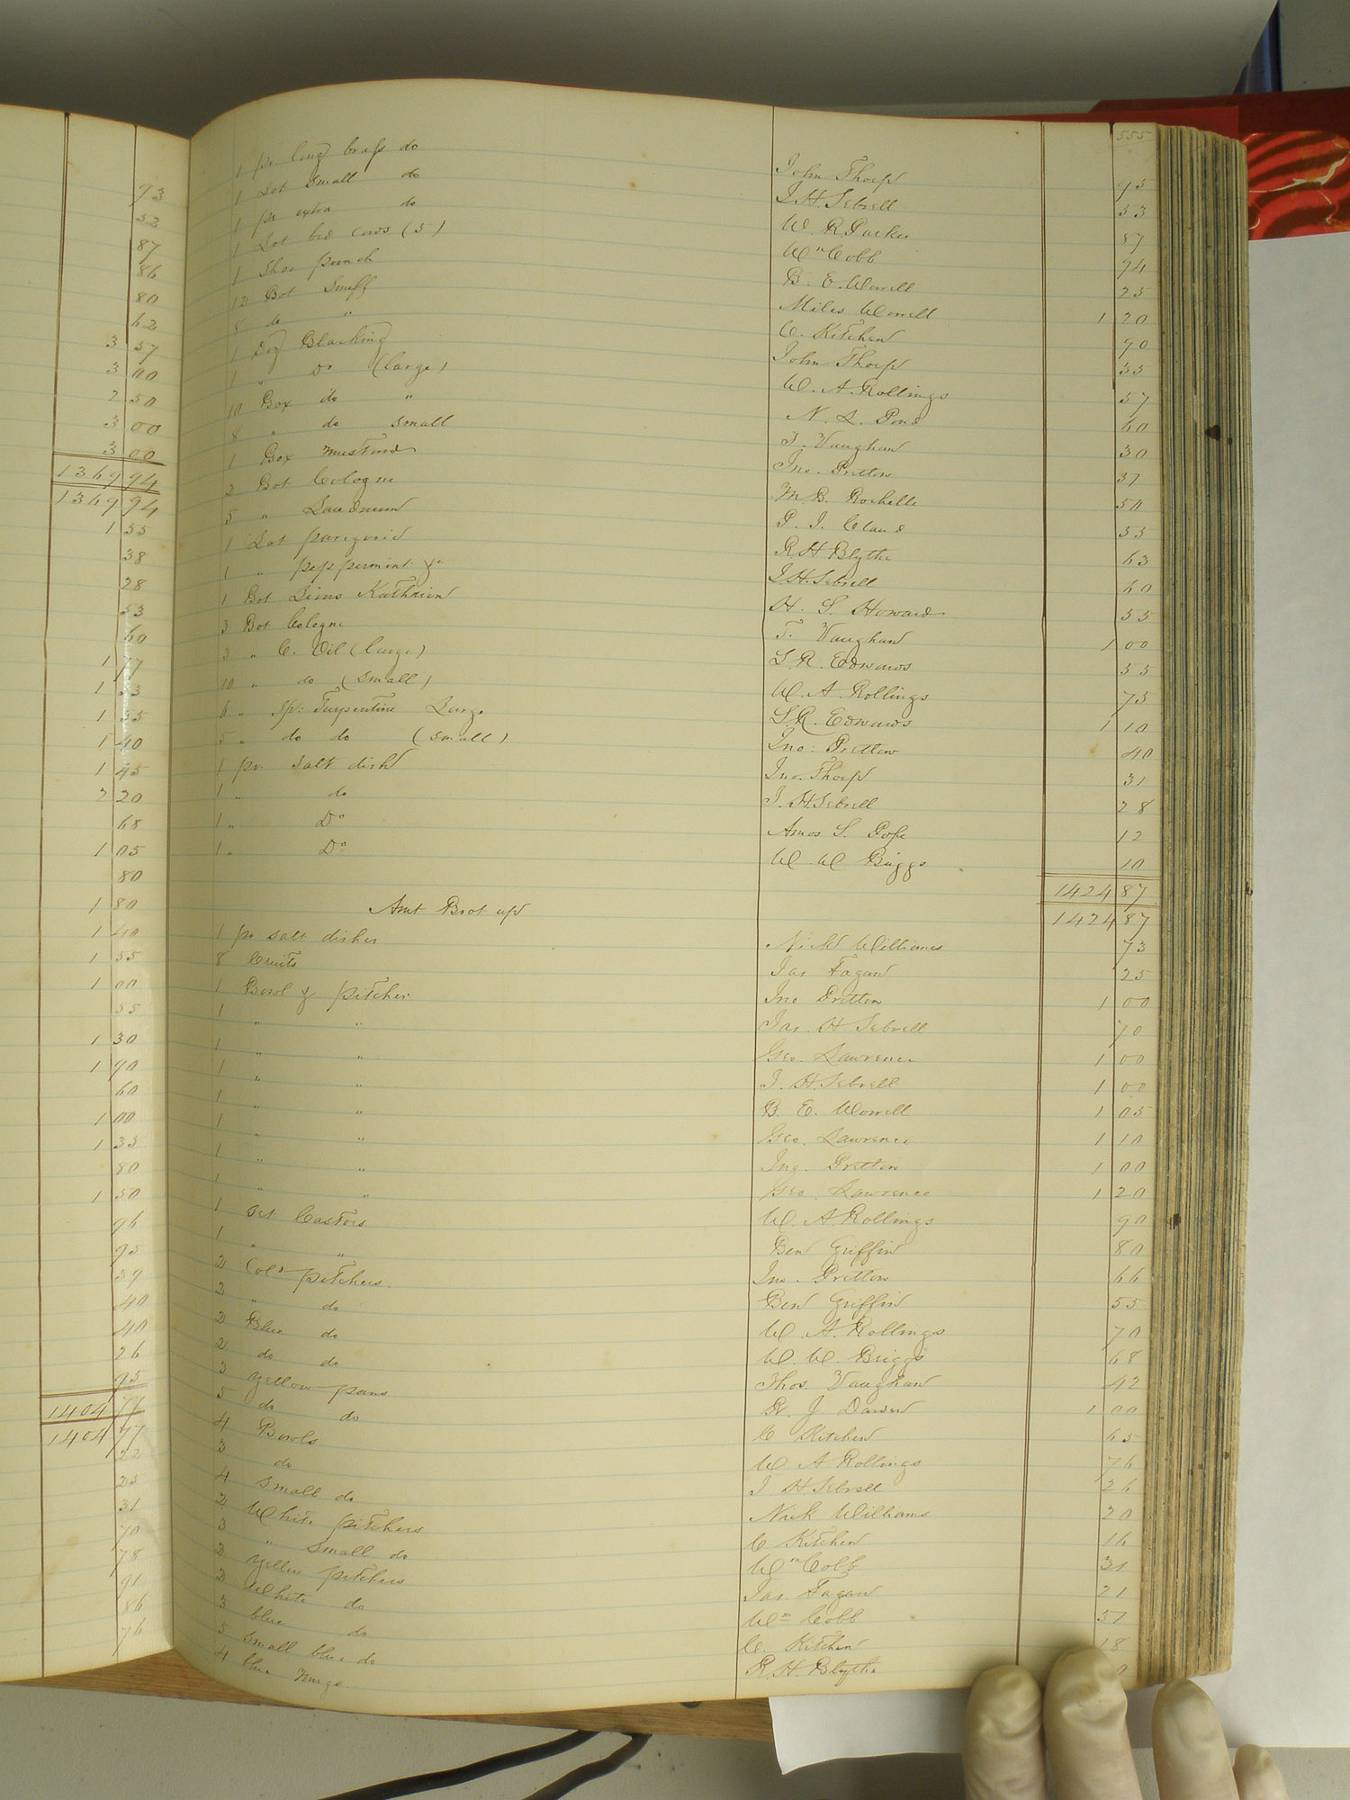 93
52
87
86
80
62
3 57
3 00
2 50
3 00
3 00
1369 94
1369 94
1 55
38
28
53
60
1 77
1 53
1 55
1 40
1 45
2 20
68
1 05
80
1 80
1 40
1 55
1 00
55
1 30
1 90
60
1 00
1 35
80
1 50
96
95
39
40
40
26
95
1404 77
1404 77
22
25
31
70
78
91
86
76
555
1 pr long brass do John Thorp 95
1 Lot small do J H Sebrell 53
1 pr extra do W. R Parker 57
1 Lot bed cords (3) Wm Cobb 94
1 Shoe punch B. E. Worrell 25
12 Bot Snuff Miles Worrell 1 20
8 do " C. Kitchen 90
1 Doz Blacking John Thorp 35
1 " Do (large) W. A. Rollings 57
10 Box do " N. L. Pond 60
8 " do small T. Vaughan 30
1 Box mustard Jno. Pretlow 37
2 Bot Cologne M. B. Rochelle 50
5 " Laudnum P. J. Claud 55
1 Lot paregoric R H Blythe 63
1 " pepperment &c J. H. Sebrell 60
1 Bot Lions Kathrion H. S. Howard 55
3 Bot Cologne T. Vaughan 1 00
3 " C. Oil (large) S. R. Edwards 55
10 " do (small) W. A. Rollings 75
6 " Sp: Turpentine Large S. R. Edwards 1 10
5 " do do (small) Jno: Pretlow 40
1 pr salt dish Jno. Thorp 31
1 " do J. H. Sebrell 28
1 " Do Amos S. Pope 12
1 " Do W W Briggs 10
1424 87
Amt Brot up 1424 87
1 pr salt dishes Nick Williams 73
8 Cruits Jas Fagan 25
1 Bowl & pitcher Jno Pretlow 1 00
1 " " Jas H Sebrell 70
1 " " Geo. Lawrence 1 00
1 " " J. H. Sebrell 1 00
1 " " B E. Worrell 1 05
1 " " Geo. Lawrence 1 10
1 " " Jno. Pretlow 1 00
1 " " Geo. Lawrence 1 20
1 Set Castors W. A Rollings 90
1 " " Ben Griffin 80
2 Cold pitchers Jno. Pretlow 66
2 " do Ben Griffin 55
2 Blue do W. A. Rollings 70
2 do do W. W. Briggs 68
3 yellow pans Thos. Vaughan 42
5 do do J 1 00
4 Bowls C Kitchen 65
3 do W A Rollings 76
4 Small do J H Sebrell 26
2 White pitchers Nick Williams 20
3 " Small do C Kitchen 16
2 yellow pitchers Wm Cobb 31
2 White do Jas. Fagan 21
3 blue do Wm Cobb 57
5 Small blue do C. Kitchen 18
4 blue mugs R. H. Blythe